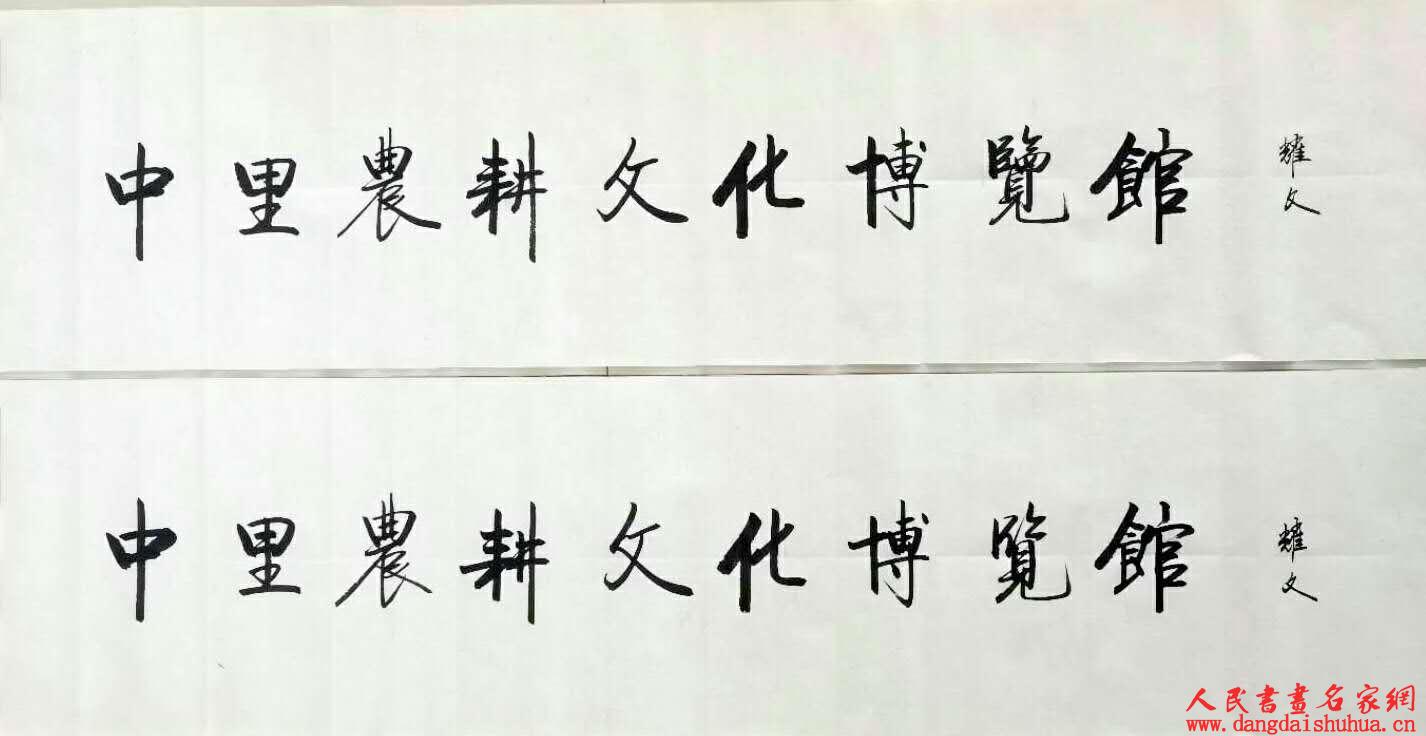 中里農耕文化博覽館 耀文
中里農耕文化博覽館 耀文
人民書畫名家網
www.dangdaishuhua.cn